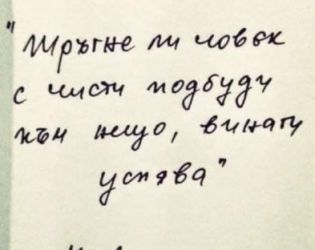 "Тръгне ли човек
с чисти подбуди
към нещо, винаги
успява"